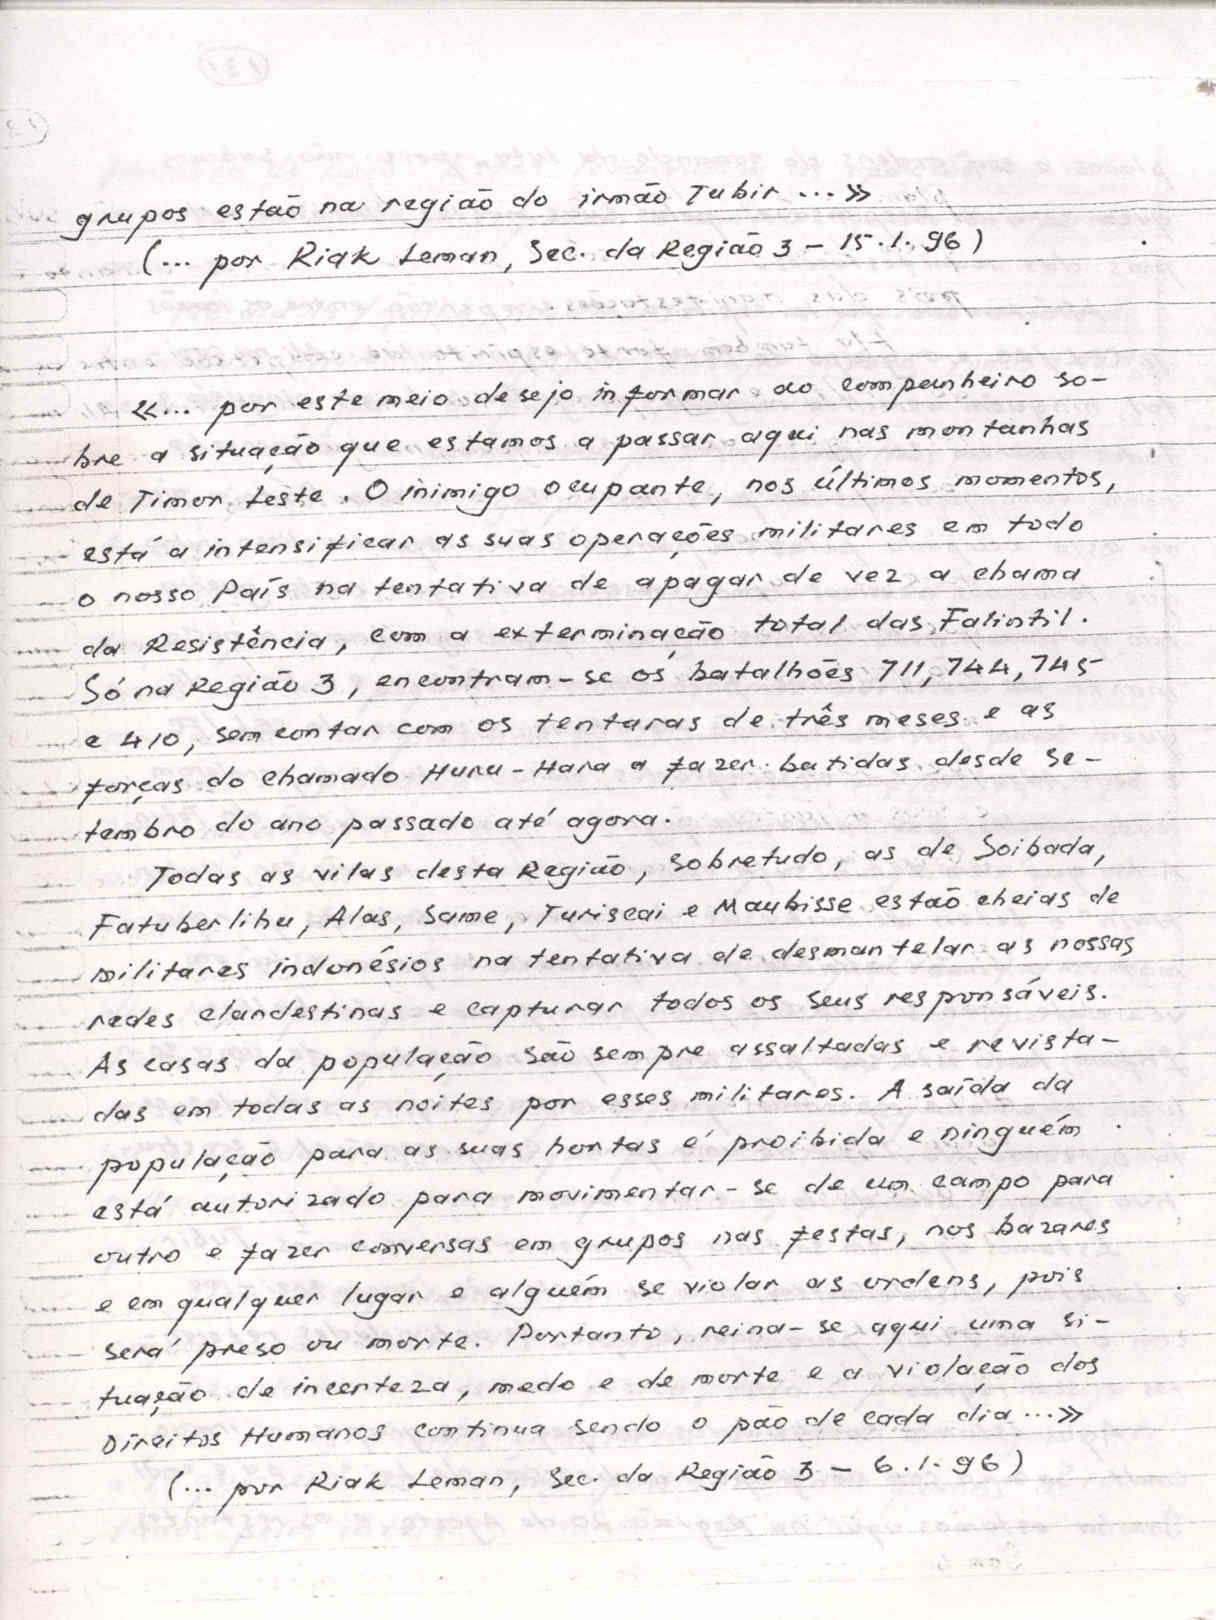 grupos estão na região do irmão Tubir ...»
(... por Riak Leman, Sec. da Região 3 - 15.1.96)
«... por este meio desejo informar ao companheiro so-
bre a situação que estamos a passar aqui nas montanhas
de Timor Leste. O inimigo ocupante, nos últimos momentos,
está a intensificar as suas operações militares em todo
o nosso País na tentativa de apagar de vez a chama
da Resistência, com a exterminação total das Falintil.
Só na Região 3, encontram-se os batalhões 711, 744, 745
e 410, sem contar com os tentaras de três meses e as
forças do chamado Huru-Hara a fazer batidas desde Se-
tembro do ano passado até agora.
Todas as vilas desta Região, sobretudo, as de Soibada,
Fatuberlihu, Alas, Same, Turiscai e Maubisse estão cheias de
militares indonésios na tentativa de desmantelar as nossas
redes clandestinas e capturar todos os seus responsáveis.
As casas da população são sempre assaltadas e revista-
das em todas as noites por esses militares. A saída da
população para as suas hortas é proibida e ninguém
está autorizado para movimentar-se de um campo para
outro e fazer conversas em grupos nas festas, nos bazares
e em qualquer lugar e alguém se violar as ordens, pois
será preso ou morte. Portanto, reina-se aqui uma si-
tuação de incerteza, medo e de morte e a violação dos
Direitos Humanos continua sendo o pão de cada dia ...»
(... por Riak Leman, Sec. da Região 3 - 6.1.96)